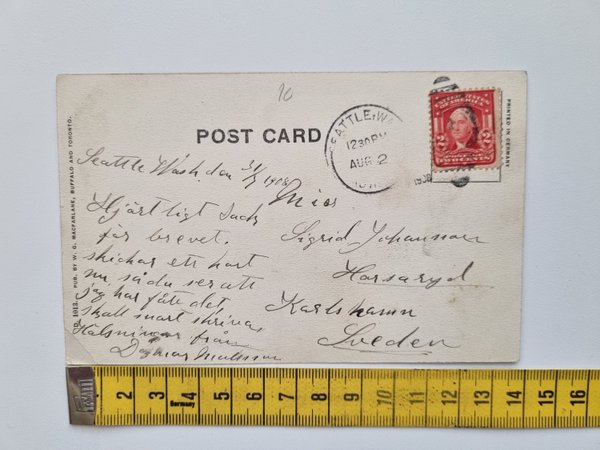 10
POST CARD
SEATTLE, WA
12 30 PM
AUG 2
1908
UNITED STATES
OF AMERICA
2 2
TWO CENTS
PRINTED IN GERMANY
NO. 1913. PUB. BY W. G. MACFARLANE, BUFFALO AND TORONTO.
Seattle Wash. den 31/7 1908
Hjärtligt Tack
för brevet.
skickar ett kort
nu så du ser att
jag har fått det,
skall snart skriva
Hälsningar från
Dagmar
Miss.
Sigrid Johansson
Horsaryd
Karlshamn
Sveden
2 3 4 5 6 7 8 9 10 11 12 13 14 15 16
Germany